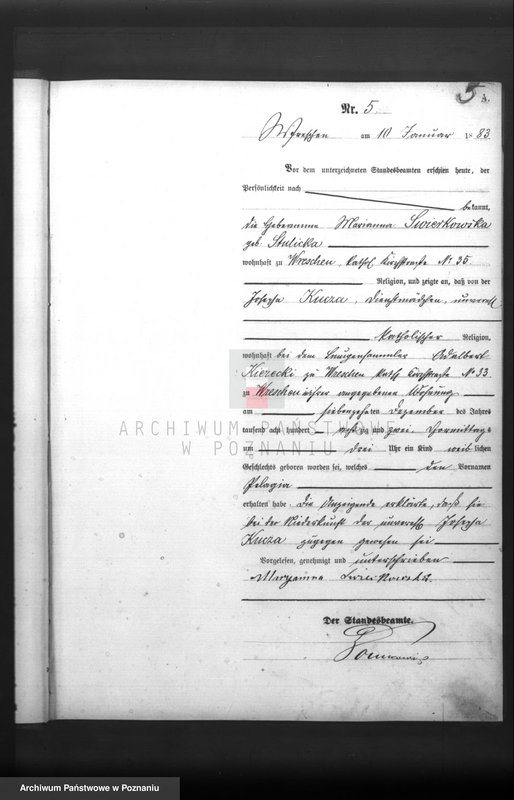 5 A.
Nr. 5.
Wreschen am 10 Januar 1883
Vor dem unterzeichneten Standesbeamten erschien heute, der
Persönlichkeit nach
bekannt,
die Hebeamme Marianna Swierkowska
geb. Stulicka
wohnhaft zu Wreschen, kathol. Kirchstraße No 35
Religion, und zeigte an, daß von der
Josepha Kucza, Dienstmädchen, unverehl
katholischer Religion,
wohnhaft bei dem Lumpensammler Adalbert
Kierecki zu Wreschen kath. Kirchstraße No 33
zu Wreschen in ihrer angegebenen Wohnung
am siebenzehnten Dezember des Jahres
tausend acht hundert achtzig und zwei Vormittags
um drei Uhr ein Kind weiblichen
Geschlechts geboren worden sei, welches den Vornamen
Pelagia
erhalten habe. Die Anzeigende erklärte, daß sie
bei der Niederkunft der unverehl. Josepha
Kucza zugegen gewesen sei
Vorgelesen, genehmigt und unterschrieben
Maryanna
Der Standesbeamte.
ARCHIWUM PAŃSTWOWE
W POZNANIU
Archiwum Państwowe w Poznaniu